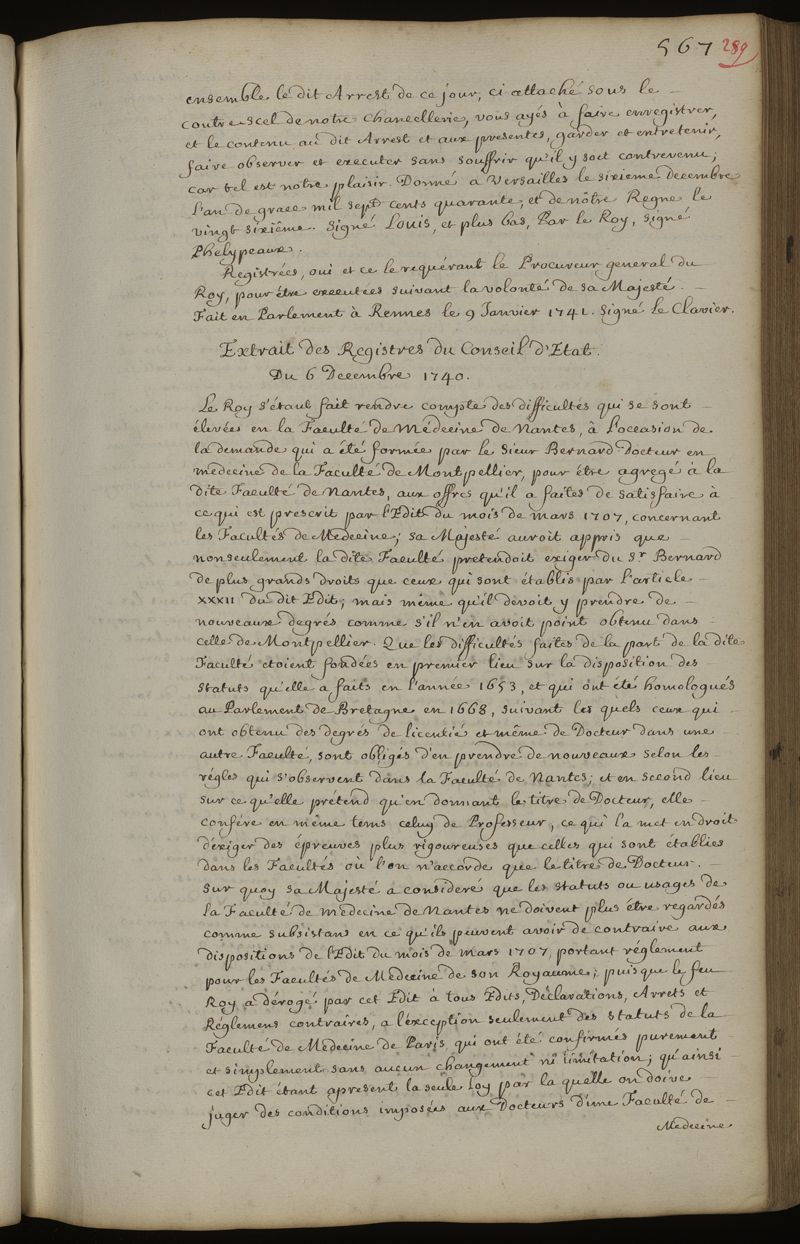 567 289
ensemble le dit Arrest de ce jour, ci attaché sous le
contre scel de notre Chancellerie, vous ayés à faire enregistrer,
et le contenu au dit Arrest et aux presentes, garder et entretenir,
faire observer et executer sans souffrir qu'il y soit contrevenu;
car tel est notre plaisir. Donné a Versailles le sixieme decembre
l'an de grace mil sept cents quarante, et de nôtre Regne le
vingt sixiême. Signé Louis, et plus bas, Par le Roy, signé
Phelypeaux.
Registrées, oui et ce le requérant le Procureur general du
Roy, pour être executées suivant la volonté de sa Majesté.
Fait en Parlement à Rennes le 9 Janvier 1741. signé Le Clavier.
Extrait des Registres du Conseil d'Etat.
Du 6 Decembre 1740.
Le Roy s'étant fait rendre compte des difficultés qui se sont
élevées en la Faculté de Médecine de Nantes, à l'occasion de
la demande qui a été formée par le sieur Bernard Docteur en
medecine de la Faculté de Montpellier, pour être agregé à la
dite Faculté de Nantes, aux offres qu'il a faites de satisfaire à
ce qui est prescrit par l'Edit du mois de mars 1707, concernant
les Facultés de Medecine; sa Majesté auroit appris que
nonseulement la dite Faculté pretendoit exiger du Sr Bernard
de plus grands droits que ceux qui sont établis par l'article
XXXII du dit Edit; mais même qu'il devoit y prendre de
nouveaux degrés comme s'il n'en avoit point obtenu dans
celle de Montpellier. Que les difficultés faites de la part de la dite
Faculté etoient fondées en premier lieu sur la disposition des
statuts qu'elle a faits en l'année 1653, et qui ont été homologués
au Parlement de Bretagne en 1668, suivant les quels ceux qui
ont obtenu des degrés de licentié et même de Docteur dans une
autre Faculté, sont obligés d'en prendre de nouveaux selon les
régles qui s'observent dans la Faculté de Nantes; et en second lieu
sur ce qu'elle prétend qu'en donnant le titre de Docteur, elle
confére en même tems celuy de Professeur, ce qui la met en droit
d'exiger des épreuves plus rigoureuses que celles qui sont établies
dans les Facultés où l'on n'accorde que le titre de Docteur.
Sur quoy sa Majesté a consideré que les statuts ou usages de
la Faculté de medecine de Nantes ne doivent plus être regardés
comme subsistans en ce qu'ils peuvent avoir de contraire aux
dispositions de l'Edit du mois de mars 1707, portant réglement
pour les Facultés de Medecine de son Royaume; puis que le feu
Roy a dérogé par cet Edit à tous Edits, Déclarations, Arrets et
Réglemens contraires, a l'éxception seulement des statuts de la
Faculté de Medecine de Paris qui ont été confirmés purement
et simplement sans aucun changement ni limitation; qu'ainsi
cet Edit étant apresent la seule Loy par la quelle on doive
juger des conditions imposées aux Docteurs d'une Faculté de
Medecine